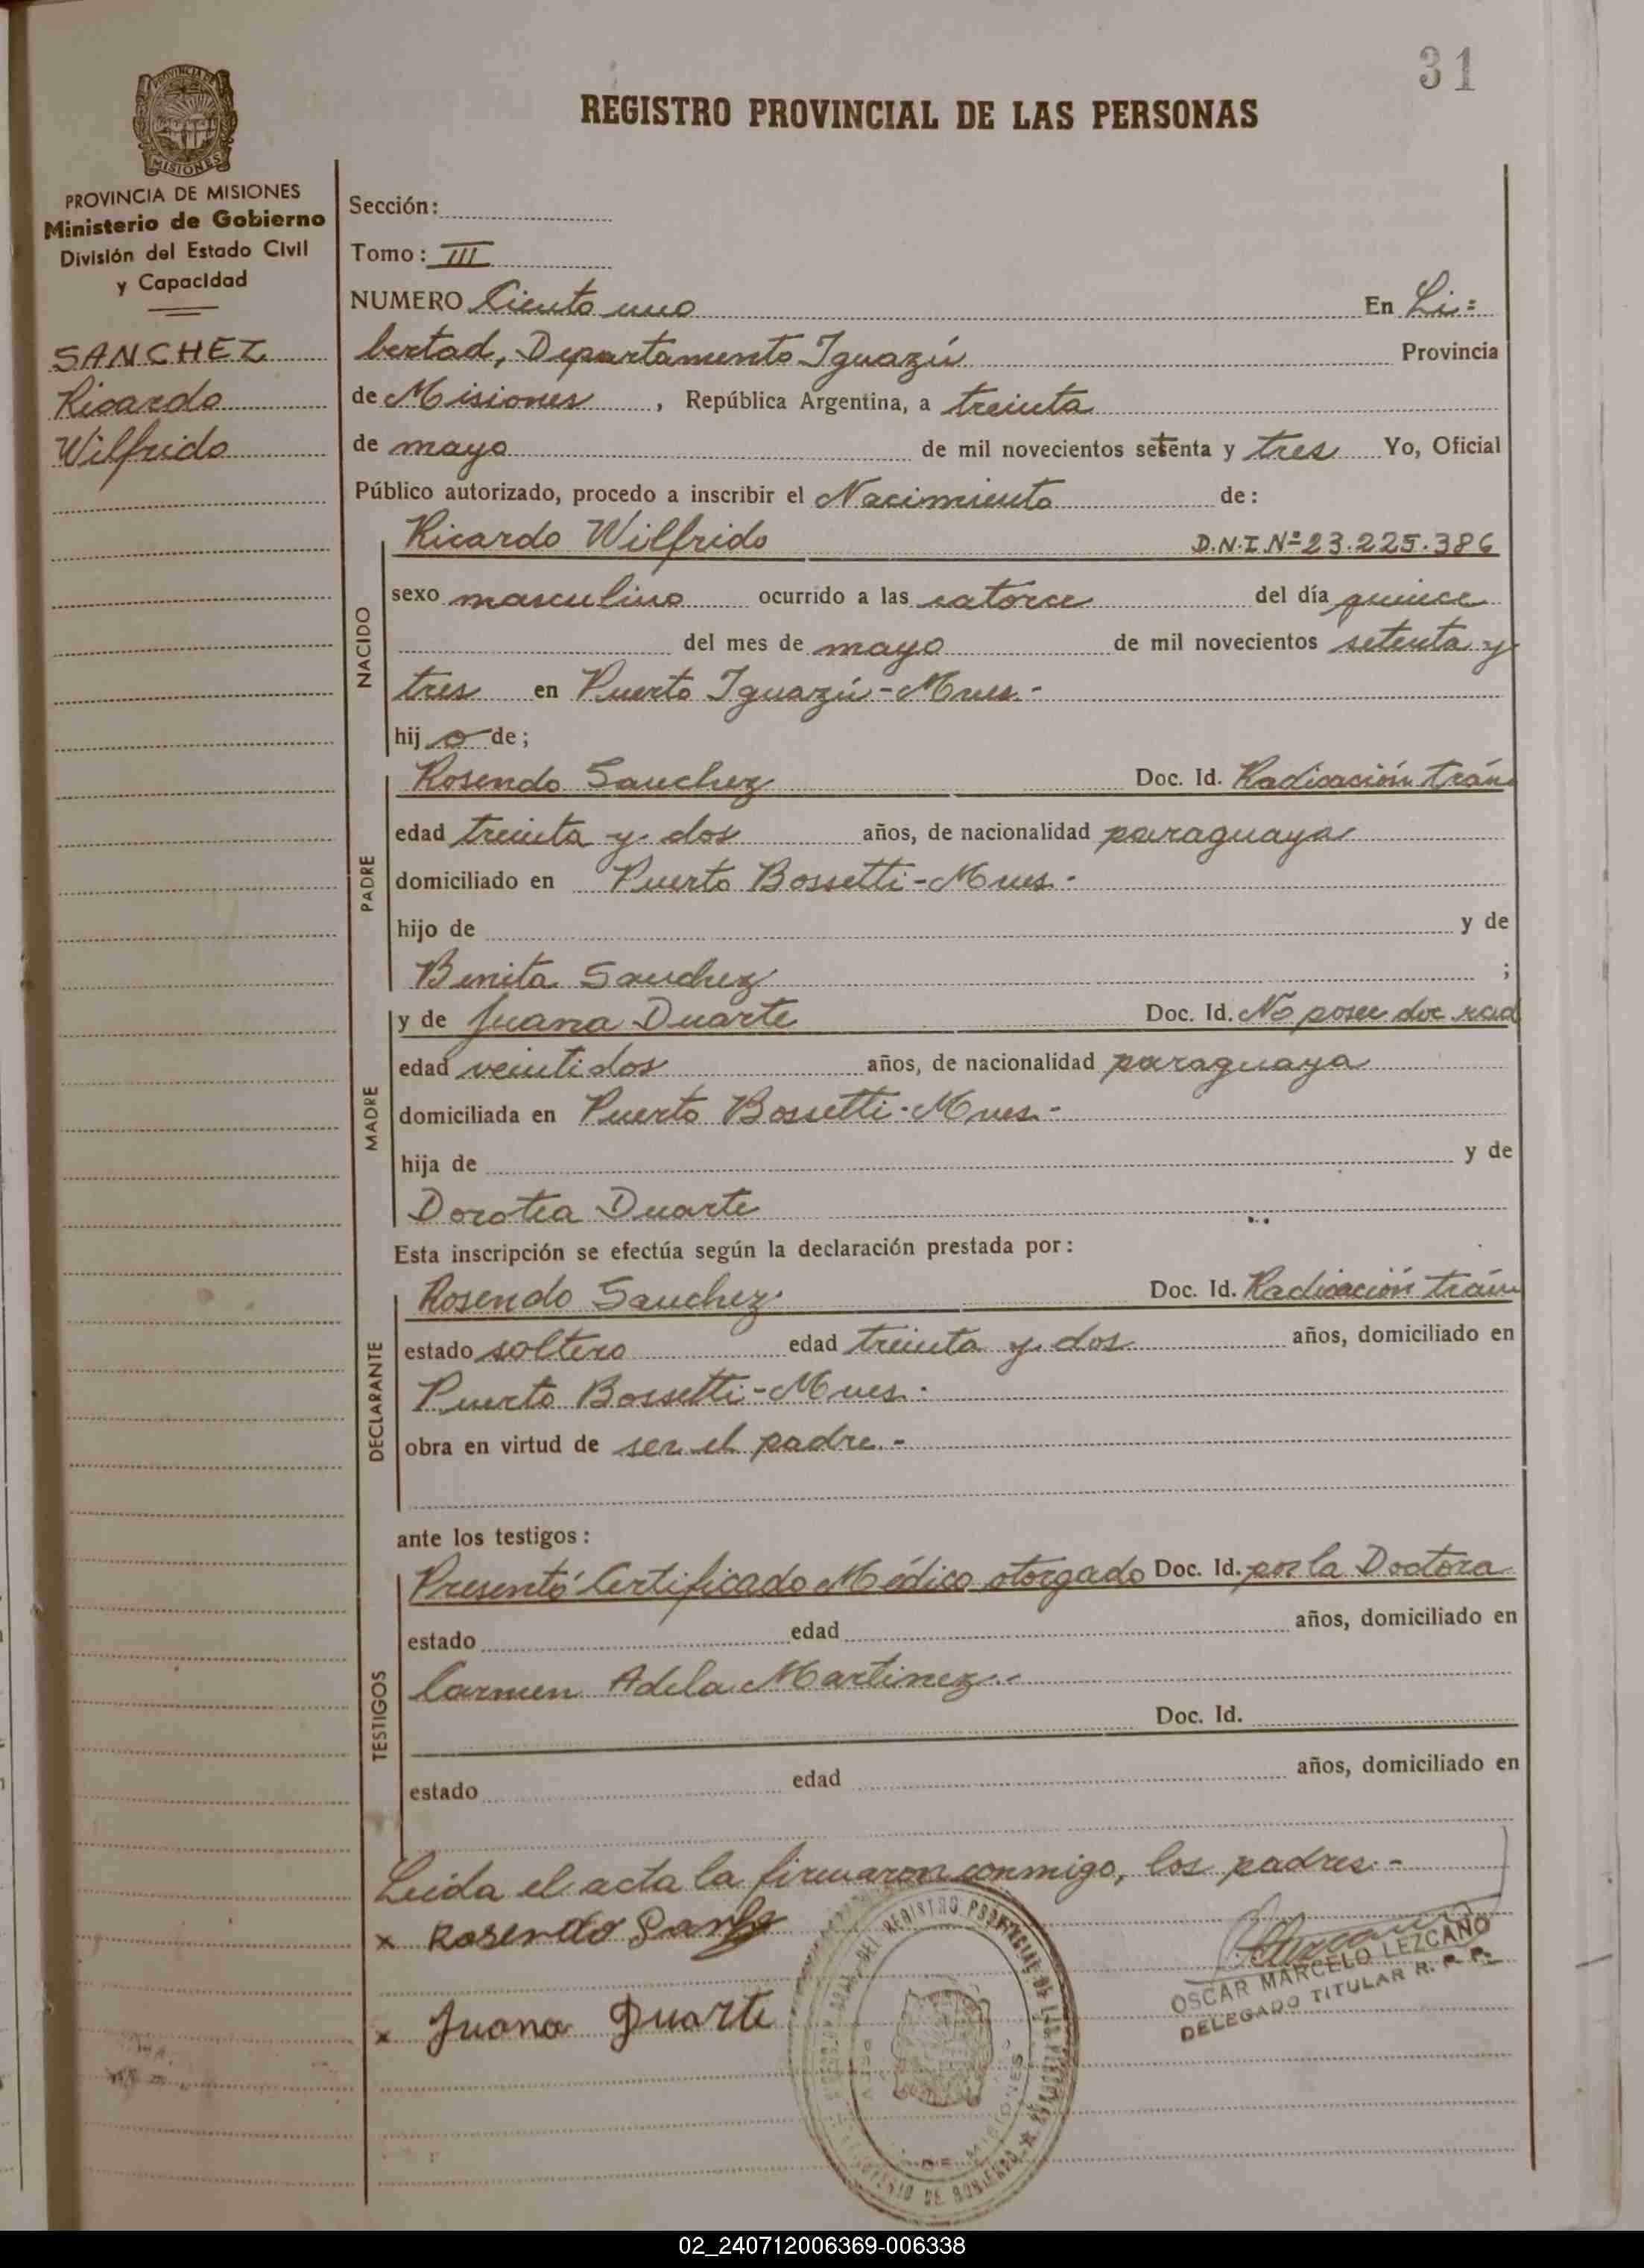 31
REGISTRO PROVINCIAL DE LAS PERSONAS
PROVINCIA DE MISIONES
Ministerio de Gobierno
División del Estado Civil
y Capacidad
SANCHEZ
Ricardo
Wilfrido
Sección:
Tomo: III
NUMERO Ciento uno En Li=
bertad, Departamento Iguazú Provincia
de Misiones, República Argentina, a treinta
de mayo de mil novecientos setenta y tres Yo, Oficial
Público autorizado, procedo a inscribir el Nacimiento de:
NACIDO
Ricardo Wilfrido D.N.I Nº 23.225.386
sexo masculino ocurrido a las catorce del día quince
del mes de mayo de mil novecientos setenta y
tres en Puerto Iguazú-Mnes.-
hijo de;
PADRE
Rosendo Sanchez Doc. Id. Radicación trám
edad treinta y dos años, de nacionalidad paraguaya
domiciliado en Puerto Bossetti-Mnes.-
hijo de y de
Benita Sanchez ;
MADRE
y de Juana Duarte Doc. Id. No posee doc rad
edad veintidos años, de nacionalidad paraguaya
domiciliada en Puerto Bossetti-Mnes.-
hija de y de
Dorotea Duarte
Esta inscripción se efectúa según la declaración prestada por:
DECLARANTE
Rosendo Sanchez Doc. Id. Radicación trám
estado soltero edad treinta y dos años, domiciliado en
Puerto Bossetti-Mnes.-
obra en virtud de ser el padre.-
ante los testigos:
TESTIGOS
Presentó Certificado Médico otorgado Doc. Id. por la Doctora
estado edad años, domiciliado en
Carmen Adela Martinez.-
Doc. Id.
estado edad años, domiciliado en
Leida el acta la firmaron conmigo, los padres.-
x Rosendo
x Juana Duarte
OSCAR MARCELO LEZCANO
DELEGADO TITULAR R. P. P.
REGISTRO PROVINCIAL DE LAS PERSONAS
MISIONES
02_240712006369-006338